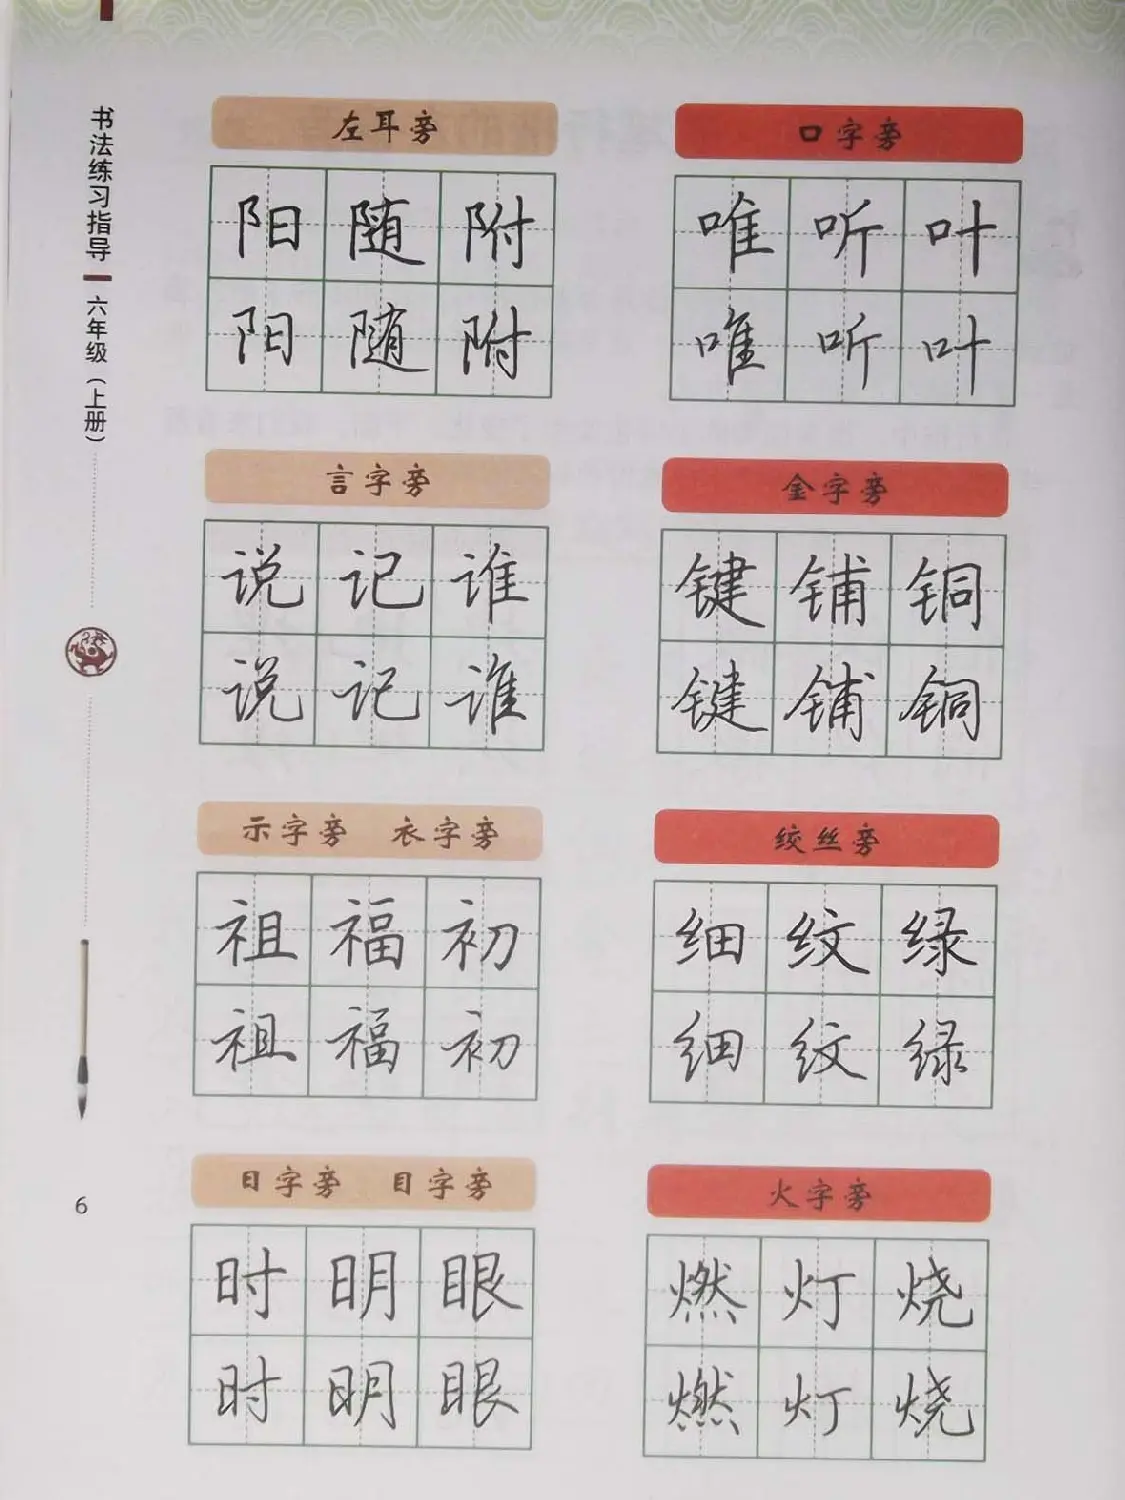 书法练习指导
六年级（上册）
左耳旁
阳 随 附
阳 随 附
口字旁
唯 听 叶
唯 听 叶
言字旁
说 记 谁
说 记 谁
金字旁
键 铺 铜
键 铺 铜
示字旁 衣字旁
祖 福 初
祖 福 初
绞丝旁
细 纹 绿
细 纹 绿
日字旁 目字旁
时 明 眼
时 明 眼
火字旁
燃 灯 烧
燃 灯 烧
6